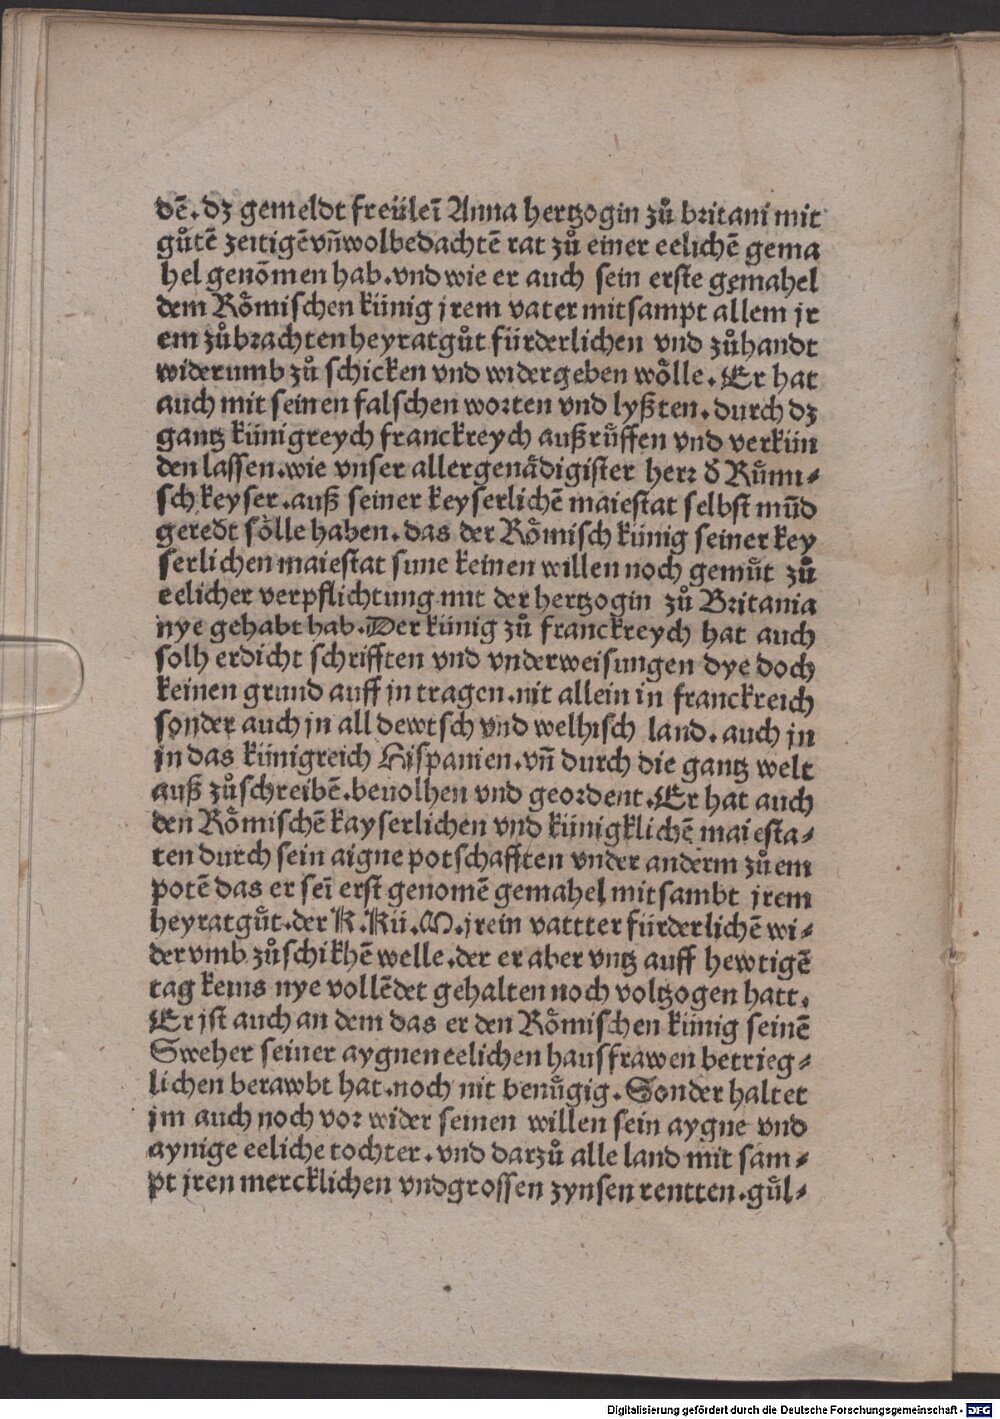 dē. dz gemeldt freüleī Anna hertzogin zů britani mit
gůtē zeitigē vñ wolbedachtē rat zů einer eelichē gema
hel genōmen hab. vnd wie er auch sein erste gemahel
dem Rőmischen künig jrem vater mitsampt allem jr
em zůbrachten heyratgůt fürderlichen vnd zůhandt
widerumb zů schicken vnd widergeben wőlle. Er hat
auch mit seinen falschen worten vnd lyßten. durch dz
gantz künigreych franckreych außrůffen vnd verkün
den lassen. wie vnser allergenädigister herr ð Rűmi-
sch keyser. auß seiner keyserlichē maiestat selbst mūd
geredt sőlle haben. das der Rőmisch künig seiner key
serlichen maiestat sune keinen willen noch gemůt zů
eelicher verpflichtung mit der hertzogin zů Britania
nye gehabt hab. Der künig zů franckreych hat auch
solh erdicht schrifften vnd vnderweisungen dye doch
keinen grund auff jn tragen. nit allein in franckreich
sonder auch jn all dewtsch vnd welhisch land. auch jn
jn das künigreich Hispanien. vñ durch die gantz welt
auß zůschreibē. beuolhen vnd geordent. Er hat auch
den Rőmischē kayserlichen vnd künigklichē maiesta-
ten durch sein aigne potschafften vnder anderm zů em
potē das er seī erst genomē gemahel mitsambt jrem
heyratgůt. der K. Kü. M. jrein vattter fürderlichē wi-
dervmb zůschikhē welle. der er aber vntz auff hewtigē
tag keins nye vollēdet gehalten noch voltzogen hatt.
Er jst auch an dem das er den Rőmischen künig seinē
Sweher seiner aygnen eelichen hausfrawen betrieg-
lichen berawbt hat. noch nit benůgig. Sonder haltet
jm auch noch vor wider seinen willen sein aygne vnd
aynige eeliche tochter. vnd darzů alle land mit sam-
pt jren mercklichen vnd grossen zynsen rentten. gůl-
Digitalisierung gefördert durch die Deutsche Forschungsgemeinschaft - DFG